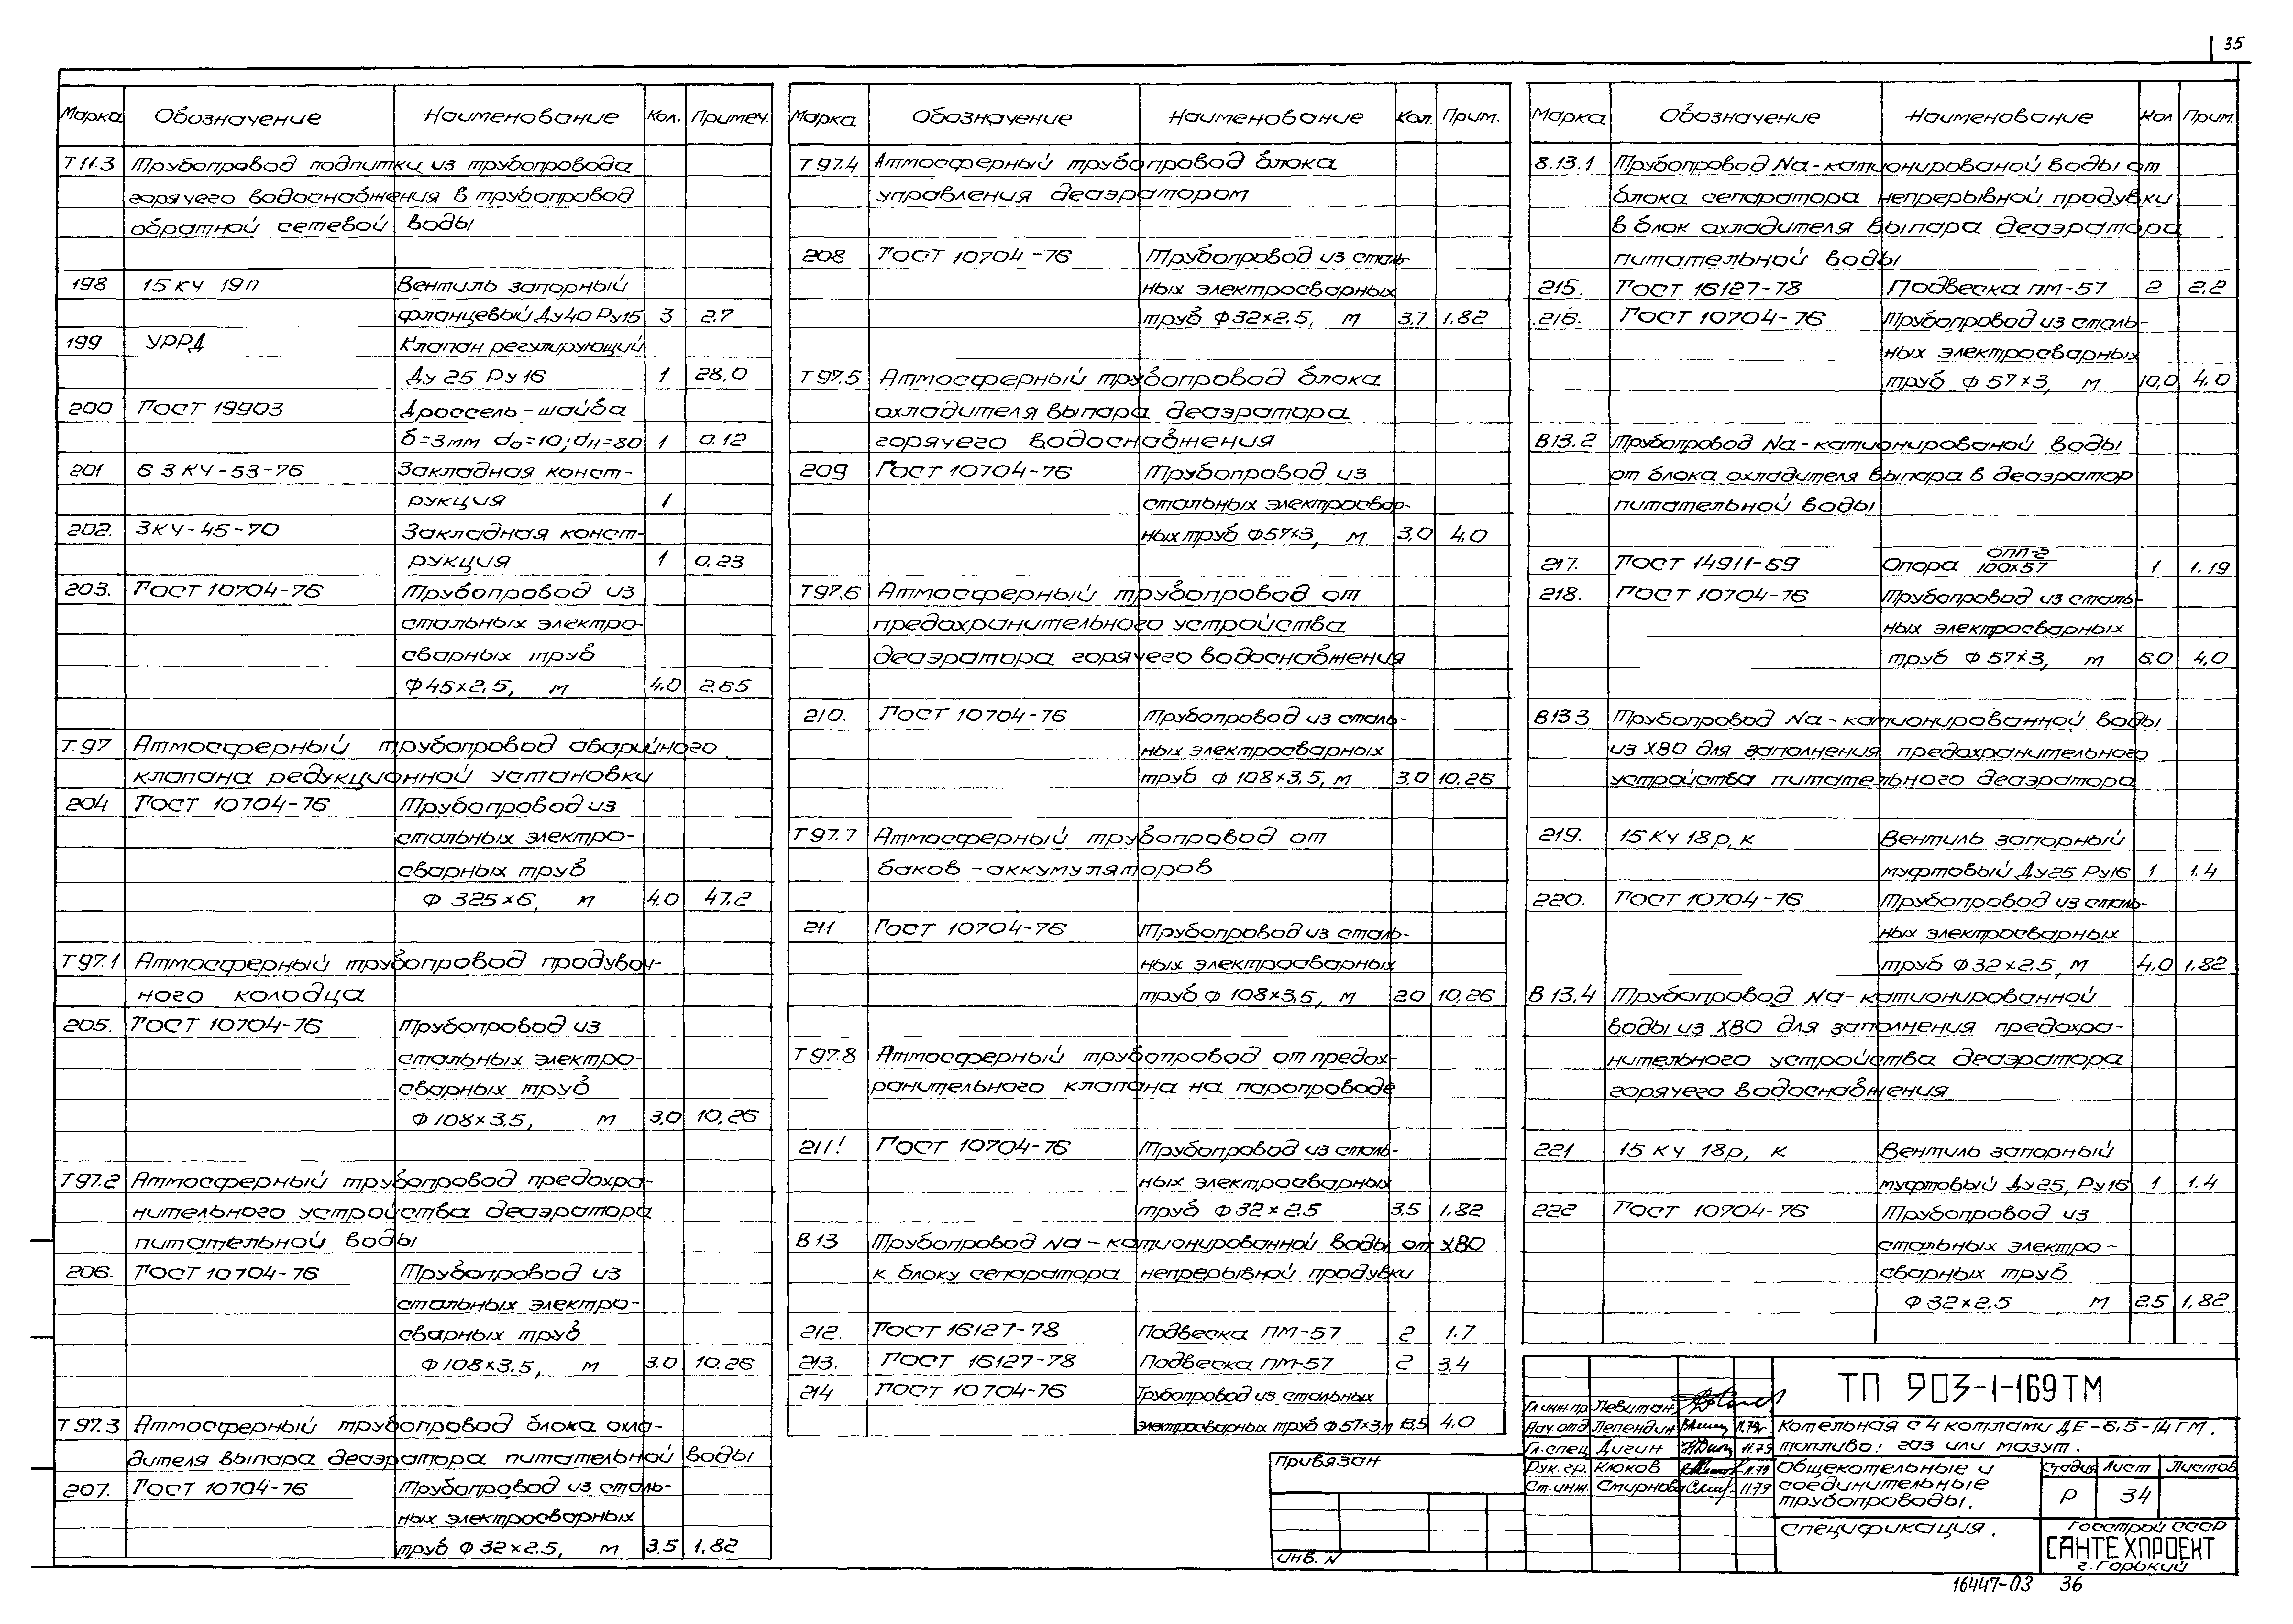 35
Марка Обозначение Наименование Кол. Примеч.
Т11.3 Трубопровод подпитки из трубопровода
горячего водоснабжения в трубопровод
обратной сетевой воды
198 15кч 19п Вентиль запорный
фланцевый Ду40 Ру15 3 2.7
199 УРРД Клапан регулирующий
Ду 25 Ру 16 1 28,0
200 ГОСТ 19903 Дроссель-шайба
δ=3мм dо=10; dн=80 1 0.12
201 63КЧ-53-76 Закладная конст-
рукция 1
202. ЗКЧ-45-70 Закладная конст-
рукция 1 0,23
203. ГОСТ 10704-76 Трубопровод из
стальных электро-
сварных труб
Ф45×2.5, м 4.0 2.65
Т.97 Атмосферный трубопровод аварийного
клапана редукционной установки
204 ГОСТ 10704-76 Трубопровод из
стальных электро-
сварных труб
Ф 325×6, м 4.0 47.2
Т97.1 Атмосферный трубопровод продувоч-
ного колодца
205. ГОСТ 10704-76 Трубопровод из
стальных электро-
сварных труб
Ф108×3.5, м 3,0 10.26
Т97.2 Атмосферный трубопровод предохра-
нительного устройства деаэратора
питательной воды
206. ГОСТ 10704-76 Трубопровод из
стальных электро-
сварных труб
Ф108×3.5, м 3.0 10.26
Т97.3 Атмосферный трубопровод блока охла-
дителя выпара деаэратора питательной воды
207. ГОСТ 10704-76 Трубопровод из сталь-
ных электросварных
труб Ф 32×2.5, м 3.5 1,82
Марка Обозначение Наименование Кол. Прим.
Т97.4 Атмосферный трубопровод блока
управления деаэратором
208 ГОСТ 10704-76 Трубопровод из сталь-
ных электросварных
труб Ф32×2.5, м 3,7 1,82
Т97.5 Атмосферный трубопровод блока
охладителя выпара деаэратора
горячего водоснабжения
209 ГОСТ 10704-76 Трубопровод из
стальных электросвар-
ных труб Ф57×3, м 3,0 4.0
Т97.6 Атмосферный трубопровод от
предохранительного устройства
деаэратора горячего водоснабжения
210. ГОСТ 10704-76 Трубопровод из сталь-
ных электросварных
труб Ф 108×3.5, м 3,0 10,26
Т97.7 Атмосферный трубопровод от
баков-аккумуляторов
211 ГОСТ 10704-76 Трубопровод из сталь-
ных электросварных
труб Ф 108×3,5, м 20 10,26
Т97.8 Атмосферный трубопровод от предох-
ранительного клапана на паропроводе
211! ГОСТ 10704-76 Трубопровод из сталь-
ных электросварных
труб Ф 32×2.5 3,5 1,82
В13 Трубопровод Na-катионированной воды от ХВО
к блоку сепаратора непрерывной продувки
212. ГОСТ 16127-78 Подвеска ПМ-57 2 1.7
213. ГОСТ 16127-78 Подвеска ПМ-57 2 3.4
214 ГОСТ 10704-76 Трубопровод из стальных
электросварных труб Ф57×3,м 13,5 4.0
Марка Обозначение Наименование Кол Прим.
8.13.1 Трубопровод Na-катионированой воды от
блока сепаратора непрерывной продувки
в блок охладителя выпара деаэратора
питательной воды
215. ГОСТ 16127-78 Подвеска ПМ-57 2 2.2
216. ГОСТ 10704-76 Трубопровод из сталь-
ных электросварных
труб Ф 57×3, м 10,0 4.0
В13.2 Трубопровод Na-катионированой воды
от блока охладителя выпара в деаэратор
питательной воды
217. ГОСТ 14911-69 Опора ОПП-2/100×57 1 1.19
218. ГОСТ 10704-76 Трубопровод из сталь-
ных электросварных
труб Ф 57×3, м 6,0 4,0
В13 3 Трубопровод Na-катионированной воды
из ХВО для заполнения предохранительного
устройства питательного деаэратора
219. 15 Кч 18 р, к Вентиль запорный
муфтовый Ду25 Ру16 1 1.4
220. ГОСТ 10704-76 Трубопровод из сталь-
ных электросварных
труб Ф 32×2.5, м 4.0 1.82
В 13.4 Трубопровод Na-катионированной
воды из ХВО для заполнения предохра-
нительного устройства деаэратора
горячего водоснабжения
221 15 КЧ 18р, к Вентиль запорный
муфтовый Ду25, Ру16 1 1.4
222 ГОСТ 10704-76 Трубопровод из
стальных электро-
сварных труб
Ф 32×2.5, м 2.5 1,82
ТП 903-1-169ТМ
Гл инж пр Левитан
Нач.отд. Лепендин 11.79г
Гл.спец Дигин 11.79
Рук. гр. Клоков 11.79
Ст.инж. Смирнова 11.79
Котельная с 4 котлами ДЕ-6,5-14ГМ.
топливо: газ или мазут.
Общекотельные и
соединительные
трубопроводы.
Стадия Лист Листов
Р 34
Спецификация.
Госстрой СССР
САНТЕХПРОЕКТ
г.Горький
Привязан
Инв. N
16447-03 36